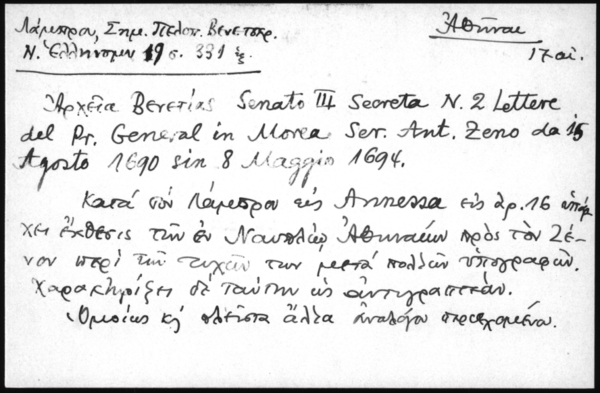 Λάμπρου, Σημ. Πελοπ. Βενετοκρ.
Ν. Ἑλληνομν 19 σ. 331 ἑξ.
Ἀθῆναι
17 αἰ.
Ἀρχεῖα Βενετίας Senato III Secreta N. 2 Lettere
del Pr. General in Morea Ser. Ant. Zeno da 15
Agosto 1690 sin 8 Maggio 1694.
Κατά τον Λάμπρον εἰς Annessa εις ἀρ. 16 ὑπάρ
χει ἔκθεσις τῶν ἐν Ναυπλίῳ Ἀθηναίων πρὸς τὸν Ζέ-
νον περί τῶν τυχῶν των μετά πολλῶν ὑπογραφῶν.
Χαρακτηρίζει δε ταύτην ὡς ἀντιγραπτέαν.
Ὁμοίως κ πλεῖστα ἄλλα ἀνάλογα περιεχομένα.